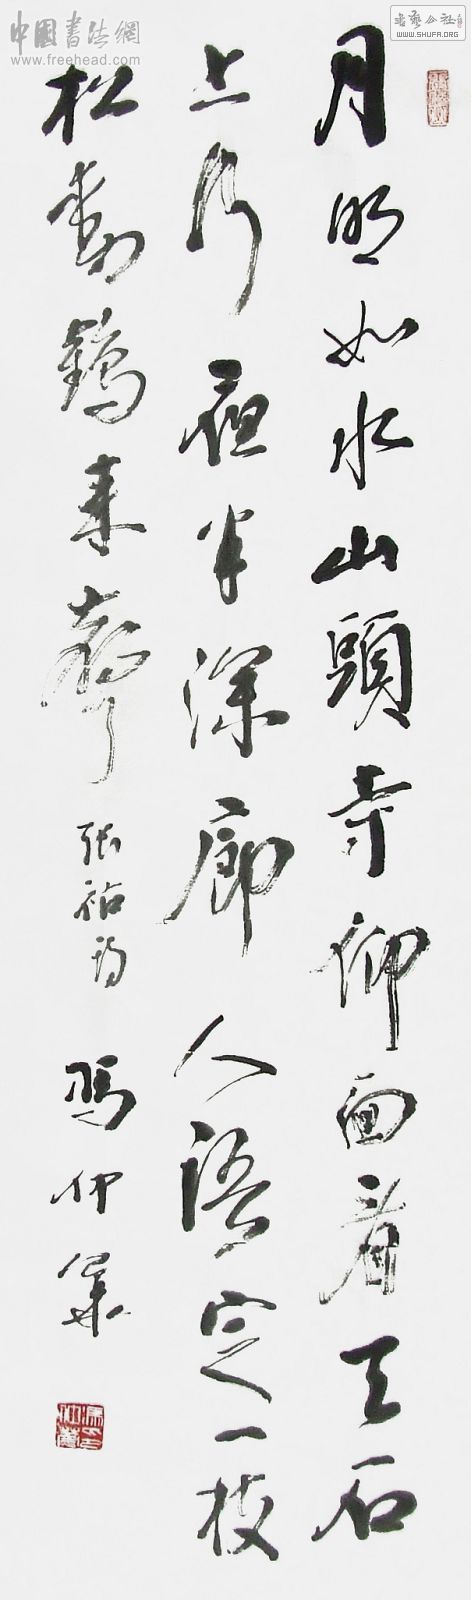 中國書法網
www.freehead.com
書藝公社
WWW.SHUFA.ORG
月明如水山頭寺仰面看天石
上行夜半深廊人語定一枝
松動鶴来聲 張祜詩